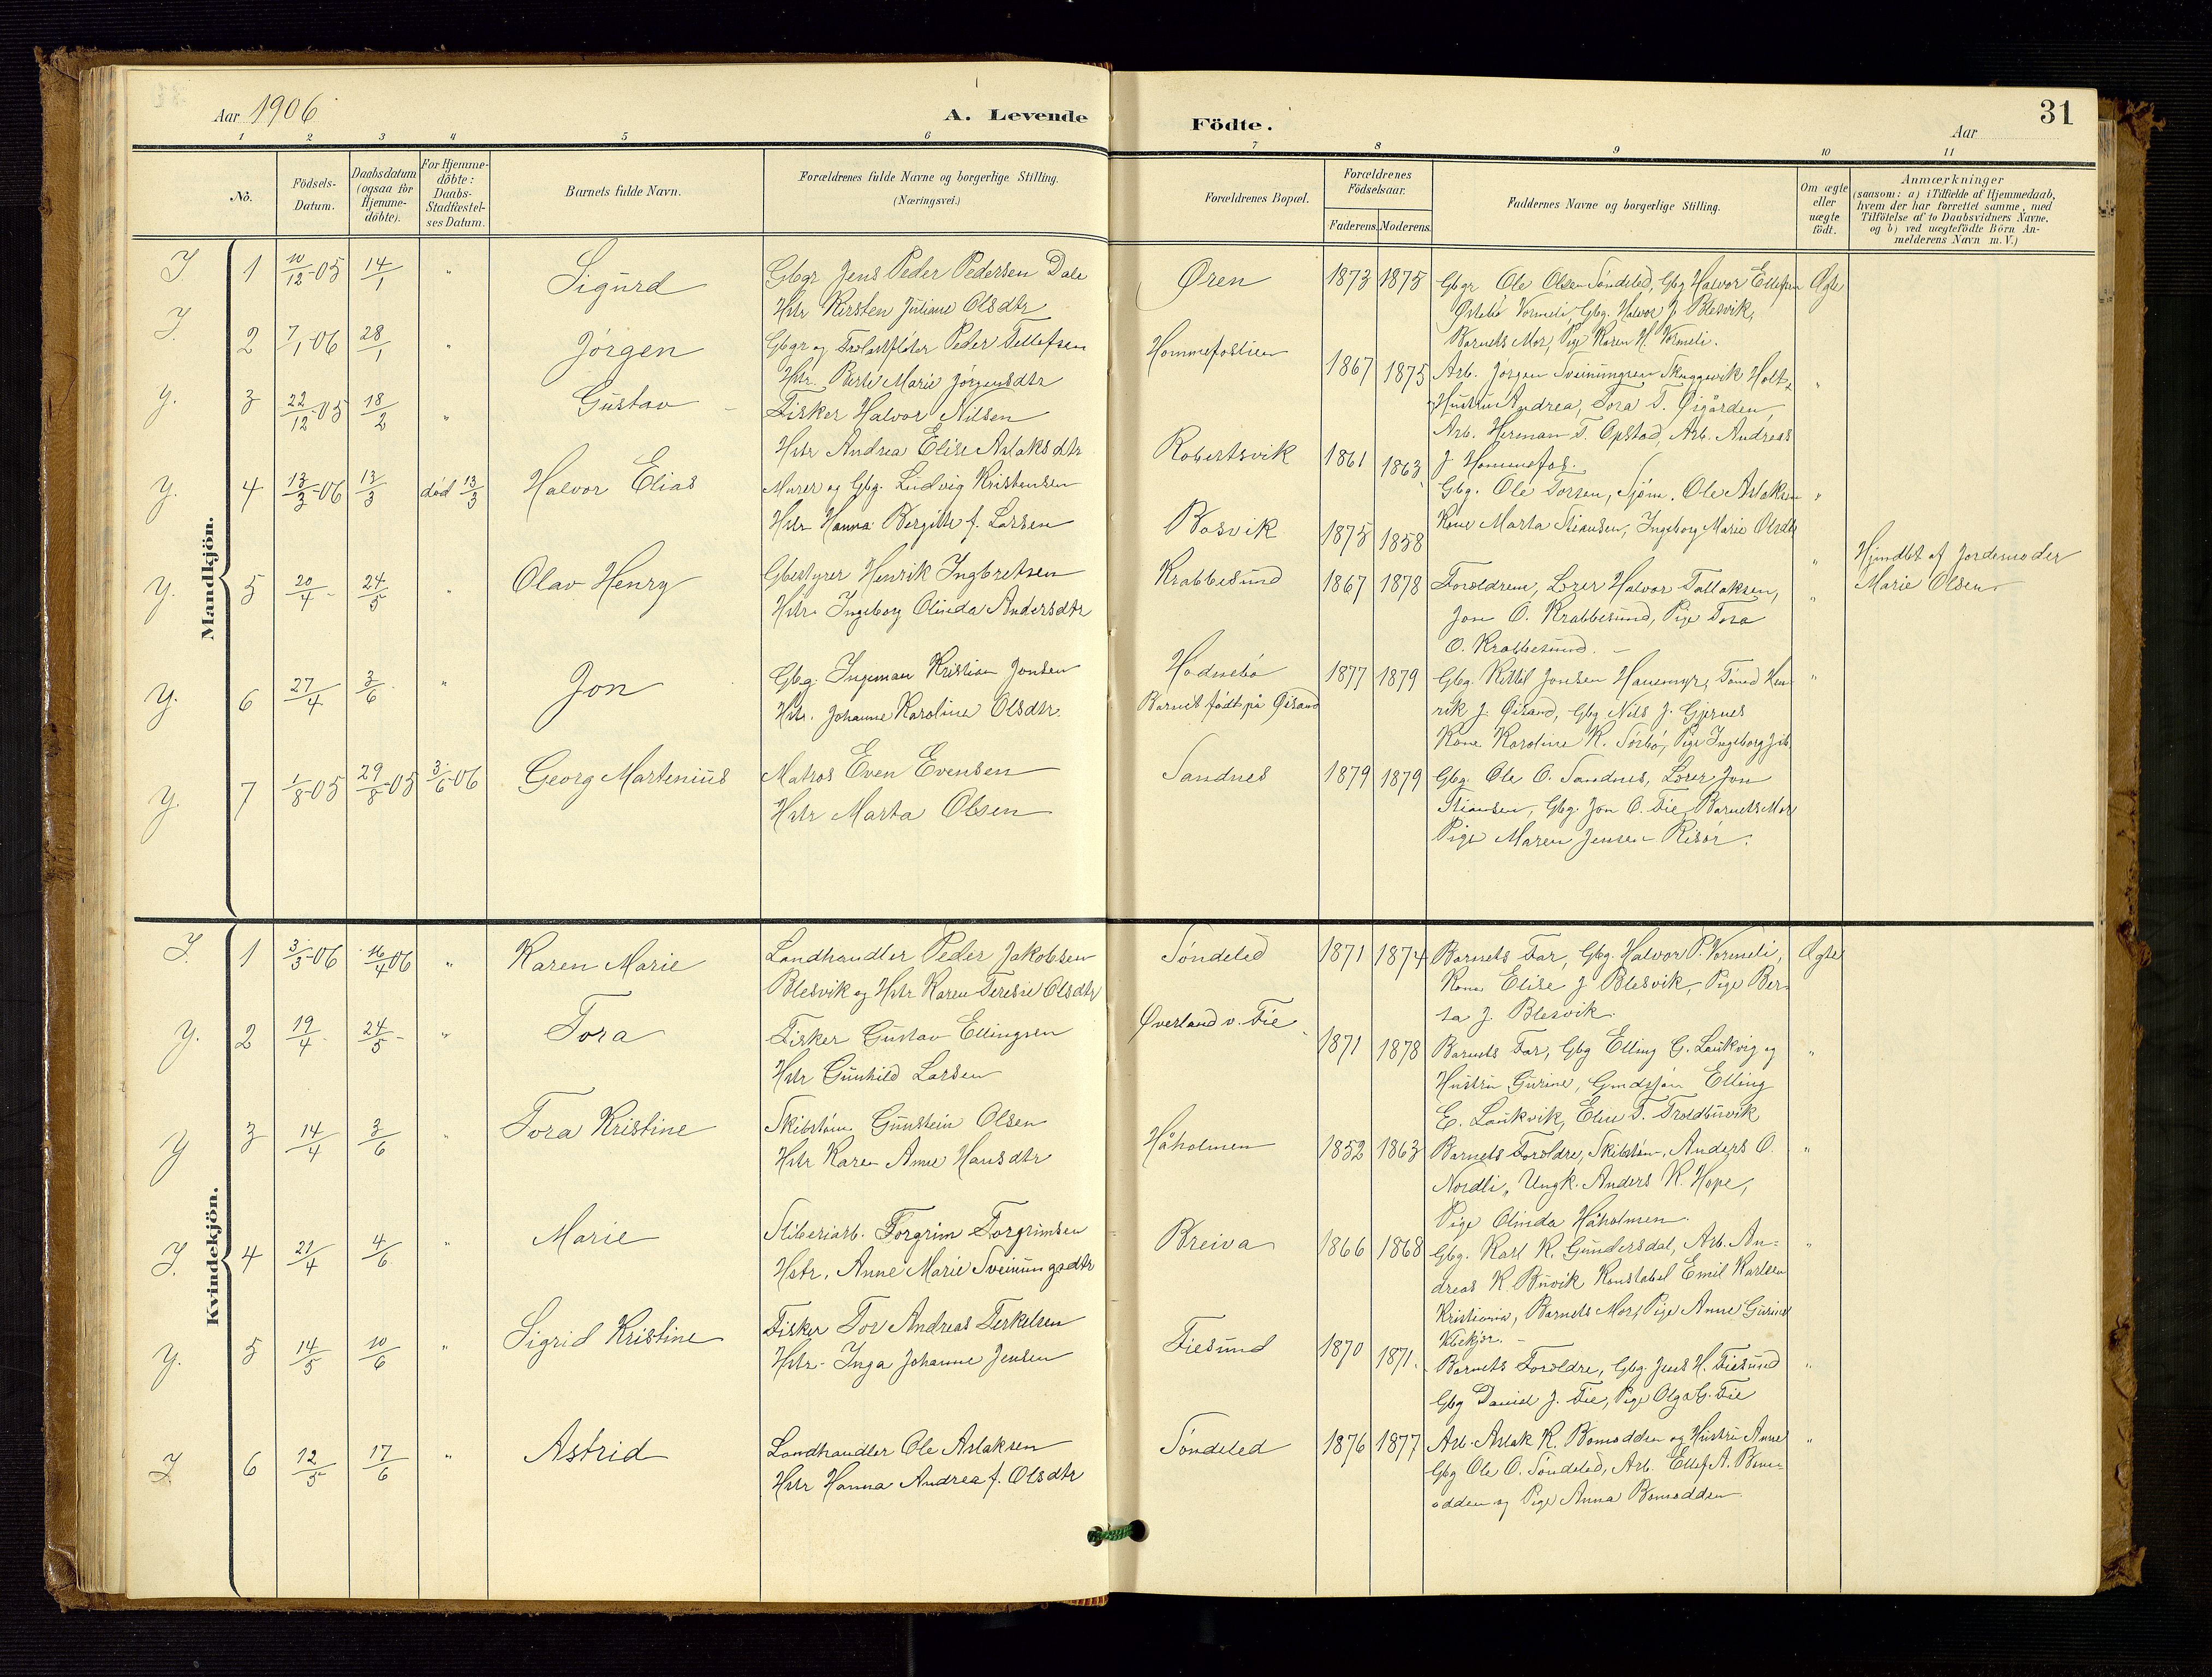 Aar 1906
A. Levende
Födte.
Aar
31
1 2 3 4 5 6 7 8 9 10 11
No.
Födsels-
Datum.
Daabsdatum
(ogsaa for
Hjemme-
döbte).
For Hjemme-
döbte:
Daabs-
Stadfæstel-
ses Datum.
Barnets fulde Navn.
Forældrenes fulde Navne og borgerlige Stilling.
(Næringsvei.)
Forældrenes Bopæl.
Forældrenes
Födselsaar.
Faderens. Moderens.
Faddernes Navne og borgerlige Stilling.
Om ægte
eller
uægte
födt.
Anmærkninger
(saasom: a) i Tilfælde af Hjemmedaab,
hvem der har forrettet samme, med
Tilföielse af to Daabsvidners Navne,
og b) ved uægtefödte Börn An-
melderens Navn m. V.)
Mandkjön.
I. 1 10/12-05 14/1 " Sigurd
Gbgr Jens Peder Pedersen Dale
Hstr Kirsten Juliane Olsdtr
Øren 1873 1875
Gbgr Ole Olsen Søndeled, Gbg Halvor Ellefsen
Vormeli, Gbg. Halvor J. Blesvik,
Barnets Mor, Pige Karen H. Vormeli.
Ægte
I. 2 7/1-06 28/1 " Jørgen
Gbgr og Peder Tellefsen
Hstr. Berte Marie Jørgensdtr
Hommefoslien 1867 1875
Arb. Jørgen Sveinungsen Skaggevik Holt,
Hustru Andrea, Tora T. Øigården,
Arb. Herman T. Opstad, Arb. Andreas
J. Hommefos.
"
Y. 3 22/12-05 18/2 " Gustav
Fisker Halvor Nilsen
Hstr Andrea Elise Aslaksdtr
Robertsvik 1861 1863
Gbg. Ole Torsen, Sjøm. Ole Aslaksen
Kone Marta Stiansen, Ingeborg Marie Olsdtr
"
Y. 4 13/3-06 13/3 død 13/3 Halvor Elias
Murer og Gbg. Ludvig Kristensen
Hstr Hanna Bergitte f. Larsen
Bosvik 1875 1858
"
Hjmdbt af Jordemoder
Marie Olsen
Y. 5 20/4- 24/5 " Olav Henry
Gbestyrer Henrik Ingbretsen
Hstr. Ingeborg Olinda Andersdtr
Krabbesund 1867 1878
Forældrene, Lærer Halvor Tallaksen,
Jon O. Krabbesund, Pige Tora
O. Krabbesund. -
"
Y. 6 27/4 3/6 " Jon
Gbg. Ingeman Kristian Jonsen
Hstr. Johanne Karoline Olsdtr.
Hodnebø 1877 1879
Barnet født på Øisand
Gbg. Kittil Jonsen Hanemyr, Tømd Hen-
rik J. Øisand, Gbg Nils J. Gjernes
Kone Karoline K. Sørbø, Pige Ingeborg
"
Y. 7 1/8-05 29/8-05 3/6-06 Georg Martenius
Matros Even Evensen
Hstr Marta Olsen
Sandnes 1879 1879
Gbg. Ole O. Sandnes, Lærer Jon
Stiansen, Gbg. Jon O. Fie, Barnets Mor
Pige Maren Jensen Risør.
Kvindekjön.
I. 1 3/3-06 16/4 06 " Karen Marie
Landhandler Peder Jakobsen
Blesvik og Hstr Karen Teresie Olsdtr
Søndeled 1871 1874
Barnets Far, Gbg. Halvor P. Vormeli,
Kone Elise J Blesvik, Pige Ber-
ta J. Blesvik.
Ægte
Y. 2 19/4- 24/5- " Tora
Fisker Gustav Ellingsen
Hstr Gunhild Larsen
Øverland v. Fie 1871 1878
Barnets Far, Gbg Elling G. Laukvig og
Hustru Gurine, Elling
E. Laukvik, Elise T. Troldbuvik
"
Y 3 14/4 3/6 " Tora Kristine
Skibstøm. Gunstein Olsen
Hstr Karen Anne Hansdtr
Håholmen 1852 1863
Barnets Foreldre, Skibstøm. Anders O.
Nordli, Ungk. Anders K. Hope,
Pige Olinda Håholmen.
"
I. 4 21/4 4/6 " Marie
Sliberiarb. Torgrim Torgrimsen
Hstr. Anne Marie Sveinungsdtr
Breiva 1866 1868
Gbg. Karl K. Gundersdal, Arb. An-
dreas K. Buvik Konstabel Emil Karlsen
Kristiania, Barnets Mor, Pige Anne Gurine
Klekjær. -
"
Y. 5 14/5 10/6 " Sigrid Kristine
Fisker Tor Andreas Terkelsen
Hstr. Inga Johanne Jensen
Fiesund 1870 1871.
Barnets Foreldre, Gbg. Jens H. Fiesund
Gbg Daniel J. Fie, Pige Olga G. Fie
"
I. 6 12/5 17/6 " Astrid
Landhandler Ole Aslaksen
Hstr Hanna Andrea f. Olsdtr
Søndeled 1876 1877
Arb. Aslak K. Bomodden og Hustru Anne
Gbg Ole O. Søndeled, Arb. Ellef A. Bom-
odden og Pige Anna Bomodden
"